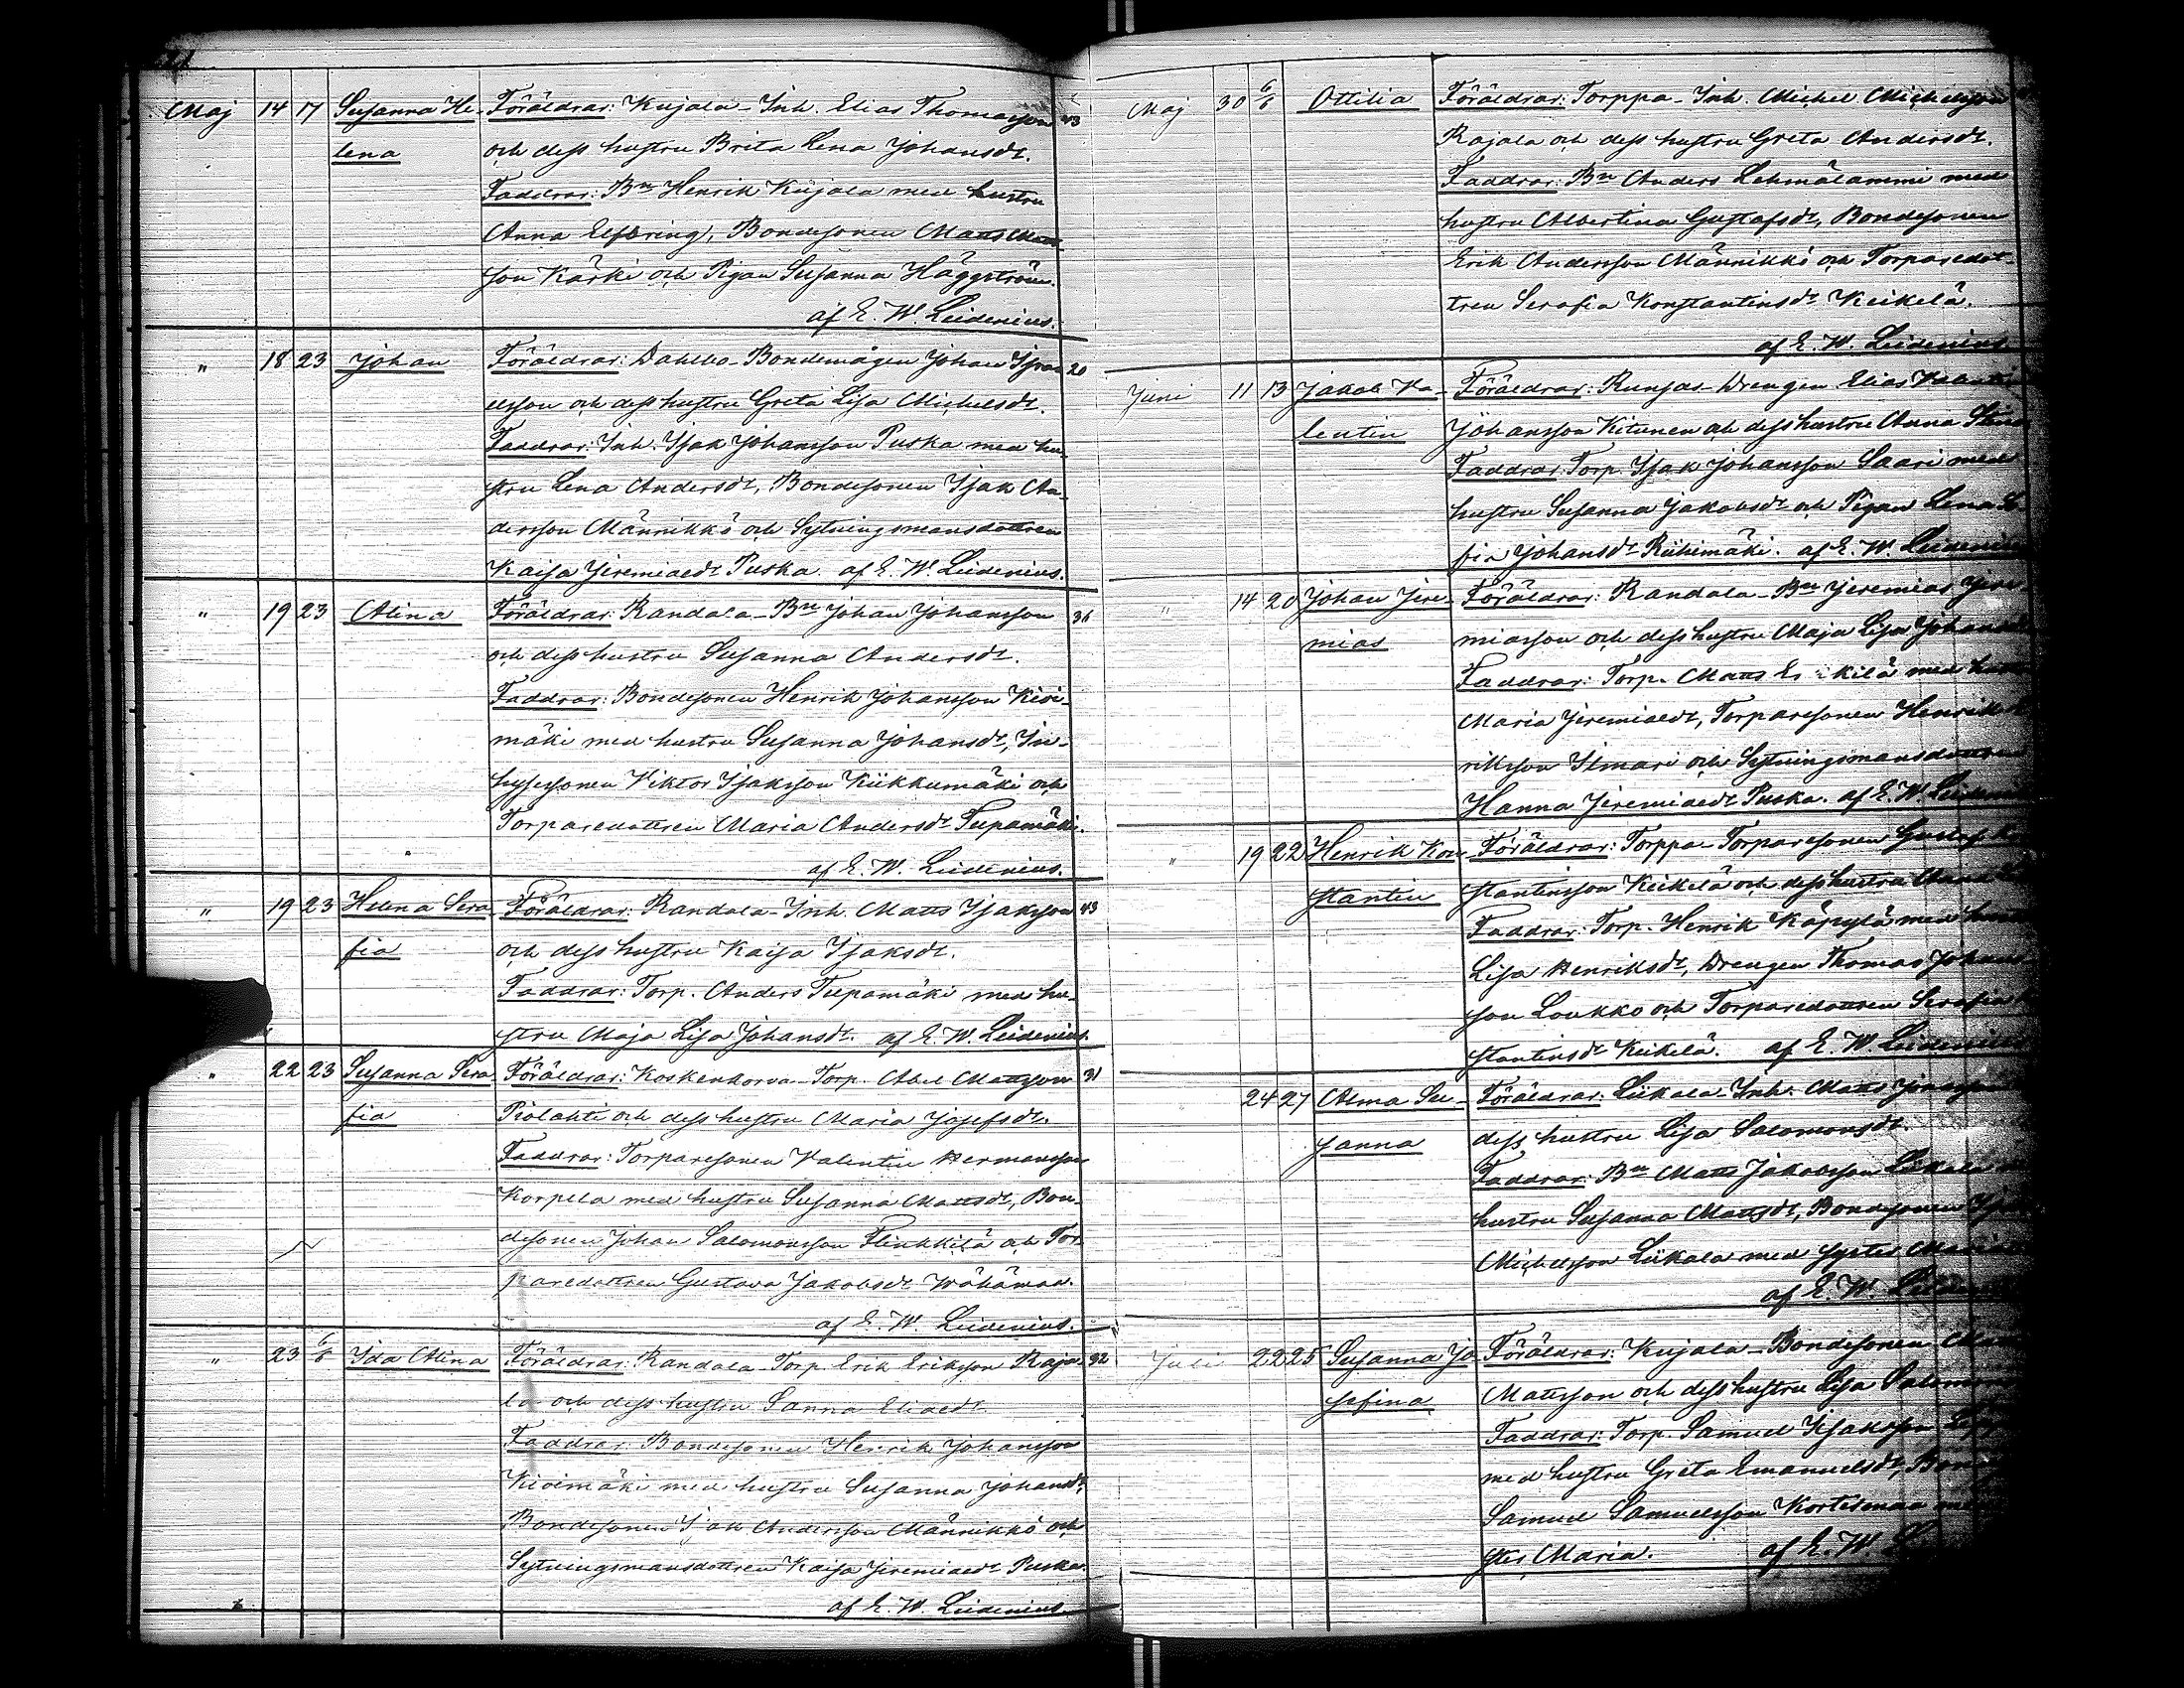 Maj 14 17 Susanna He- Föräldrar: Kujala-Inh. Elias Thomasson 43
lena och dess hustru Brita Lena Johansdr.
Faddrar: Bn Henrik Kujala med hustru
Anna Elfbring, Bondesonen Matts Matts-
son Kärki och Pigan Susanna Häggström.
af E. W. Leidenius.
" 18 23 Johan Föräldrar: Dahlbo-Bondemågen Johan Isra- 20
elsson och dess hustru Greta Lisa Michelsdr.
Faddrar: Inh. Isak Johansson Puska med hu-
stru Lena Andersdr, Bondesonen Isak An-
dersson Männikkö och Sytningsmansdottren
Kaisa Jeremiaedr Puska. af E. W. Leidenius.
" 19 23 Alina Föräldrar: Randala-Bn Johan Johansson 36
och dess hustru Susanna Andersdr.
Faddrar: Bondesonen Henrik Johansson Kivi-
mäki med hustru Susanna Johansdr, In-
hysessonen Viktor Isaksson Kiikkumäki och
Torparedottren Maria Andersdr Teepamäki.
af E. W. Leidenius.
" 19 23 Helena Sera- Föräldrar: Randala-Inh. Matts Isaksson 43
fia och dess hustru Kaisa Isaksdr.
Faddrar: Torp. Anders Teepamäki med hu-
stru Maja Lisa Johansdr. af E. W. Leidenius.
" 22 23 Susanna Sera- Föräldrar: Koskenkorva-Torp. Abel Mattsson 31
fia Piolahti och dess hustru Maria Josefsdr.
Faddrar: Torparesonen Valentin Hermansson
Korpela med hustru Susanna Mattsdr, Bon-
desonen Johan Salomonsson Flinkkilä och Tor-
paredottren Gustava Jakobsdr Wähämaa.
af E. W. Leidenius.
" 23 6/6 Ida Alina Föräldrar: Randala-Torp. Erik Eriksson Raja- 32
la och dess hustru Sanna Eliaedr.
Faddrar: Bondesonen Henrik Johansson
Kivimäki med hustru Susanna Johansdr,
Bondesonen Isak Andersson Männikkö och
Sytningsmansdottren Kaisa Jeremiaedr Puska.
af E. W. Leidenius.
Maj 30 6/6 Ottilia Föräldrar: Torppa-Inh. Michel Michelsson
Rajala och dess hustru Greta Andersdr.
Faddrar: Bn Anders Lehmälammi med
hustru Albertina Gustafsdr, Bondesonen
Erik Andersson Männikkö och Torparedot-
tren Serafia Konstantinsdr Keikelä.
af E. W. Leidenius
Juni 11 13 Jakob Va- Föräldrar: Runjas-Drengen Elias
lentin Johansson Kitinen och dess hustru Anna
Faddrar: Torp. Isak Johansson Saari med
hustru Susanna Jakobsdr och Pigan Lena So-
fia Johansdr Riihimäki. af E. W. Leidenius
" 14 20 Johan Jere- Föräldrar: Randala-Bn Jeremias Jere-
mias miasson och dess hustru Maja Lisa
Faddrar: Torp. Matts med
Maria Jeremiaedr, Torparesonen Henrik
riksson Ilmari och Sytningsmansdottren
Hanna Jeremiaedr Puska. af E. W.
" 19 22 Henrik Kon- Föräldrar: Torppa-Torparesonen Gustaf
stantin stantinsson Keikelä och dess hustru
Faddrar: Torp. Henrik Käpylä med
Lisa Henriksdr, Drengen Thomas Johans-
son Loukko och Torparedottren Serafia
stantinsdr Keikelä. af E. W. Leidenius
24 27 Alma Su- Föräldrar: Liikala-Inh. Matts
sanna dess hustru Lisa Salomonsdr.
Faddrar: Bn Matts Jakobsson Liikala
hustru Susanna Mattsdr, Bondesonen
Michelsson Liikala med syster Maria
af E. W.
Juli 22 25 Susanna Jo- Föräldrar: Kujala-Bondesonen
sefina Mattsson och dess hustru Lisa
Faddrar: Torp. Samuel Isaksson
med hustru Greta Emanuelsdr,
Samuel Samuelsson Kortesmaa
ster Maria. af E. W.